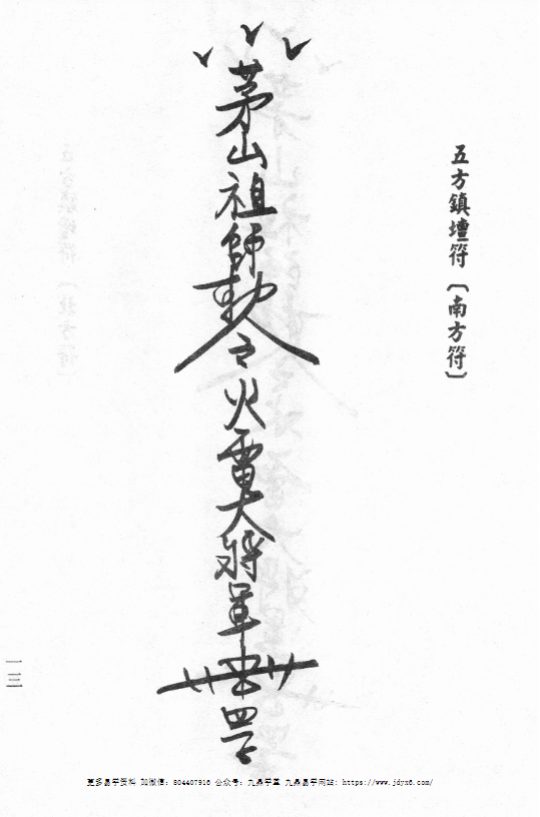 五方鎮壇符〔南方符〕
茅山祖師勅令火雷大將軍
罡
一三
更多易学资料 加微信：804407916 公众号：九鼎学堂 九鼎易学网站：https://www.jdyx6.com/